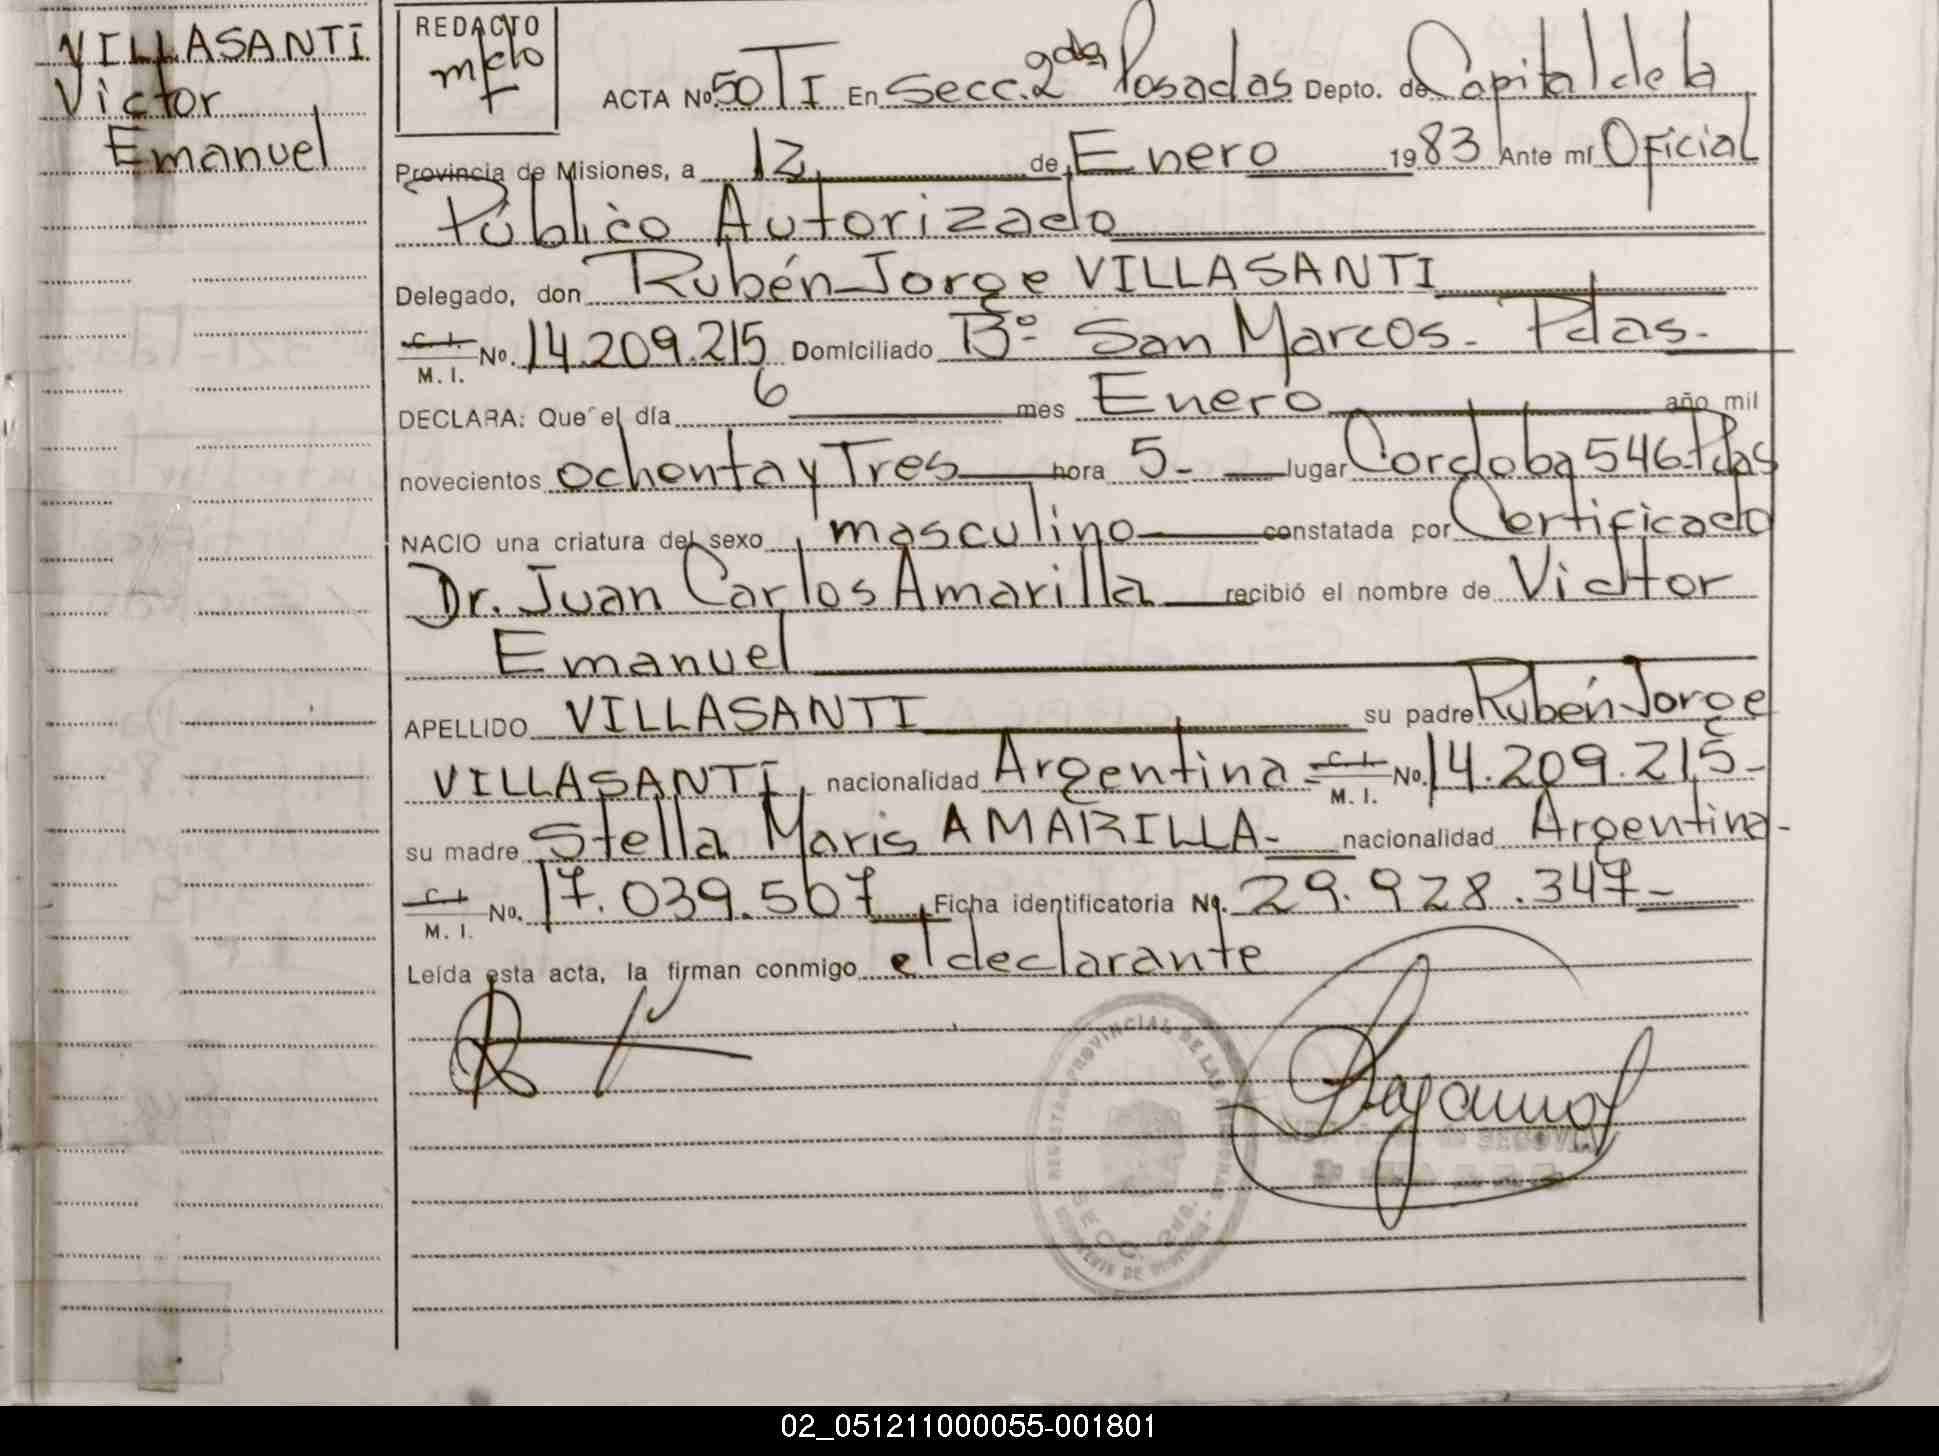 VILLASANTI
Victor
Emanuel
REDACTO
ACTA No. 50 TI En Secc. 2da Posadas Depto. de Capital de la
Provincia de Misiones, a 12 de Enero 1983 Ante mí Oficial
Público Autorizado
Delegado, don Rubén Jorge VILLASANTI
C.I.
M. I. No. 14.209.215 Domiciliado B° San Marcos. Pdas.
DECLARA: Que el día 6 mes Enero año mil
novecientos ochenta y Tres hora 5- lugar Cordoba 546-Pdas
NACIO una criatura del sexo masculino constatada por Certificado
Dr. Juan Carlos Amarilla recibió el nombre de Victor
Emanuel
APELLIDO VILLASANTI su padre Rubén Jorge
VILLASANTI, nacionalidad Argentina C.I.
M. I. No. 14.209.215-
su madre Stella Maris AMARILLA- nacionalidad Argentina-
C.I.
M. I. No. 17.039.507 Ficha identificatoria No. 29.928.347-
Leída esta acta, la firman conmigo el declarante
REGISTRO PROVINCIAL DE LAS PERSONAS
SECC. 2da.
02_051211000055-001801